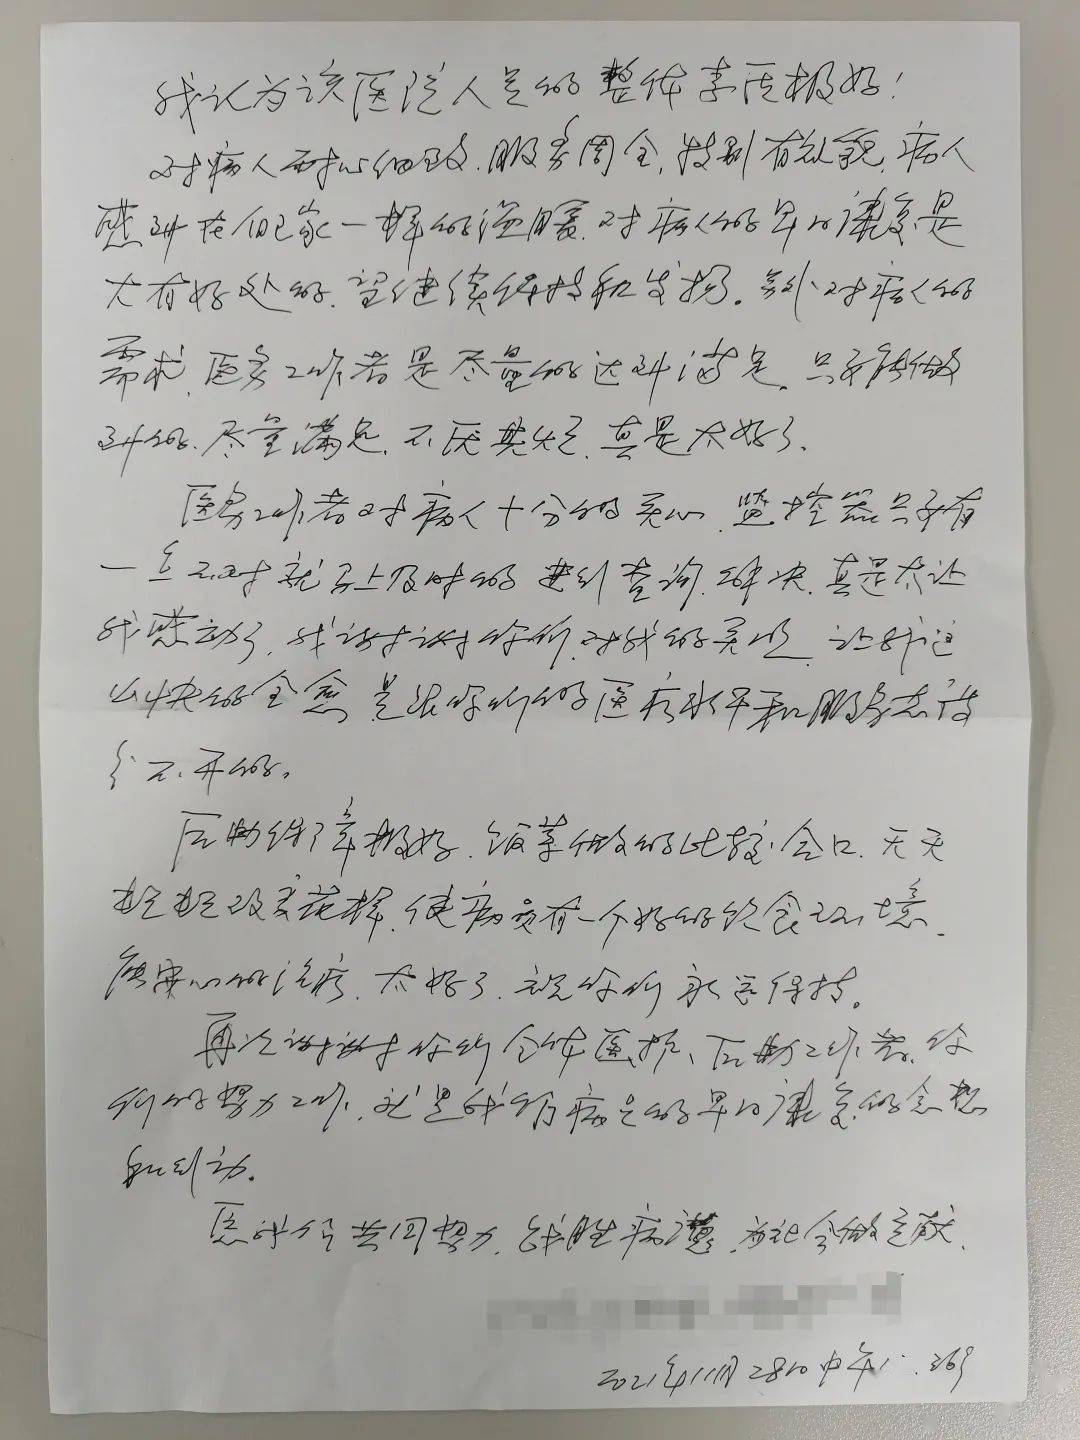 我认为该医院人员的整体素质极好！
对病人耐心细致、服务周全，特别有礼貌，病人
感到在自己家一样的温暖，对病人的早日康复是
大有好处的，望继续保持和发扬。另外对病人的
需求，医务工作者是尽量的达到满足，只要能做
到的，尽量满足，不厌其烦，真是太好了。
医务工作者对病人十分的关心，监控器只要有
一点不对就马上及时的进行查询、解决，真是太让
我感动了，我谢谢你们对我的关心，让我这
么快的全愈是跟你们的医疗水平和服务态度
分不开的。
后勤保障极好，饭菜做的比较合口，天天
想想改变花样，使病员有一个好的饮食环境，
使安心的治疗，太好了，祝你们永远保持。
再次谢谢你们全体医护、后勤工作者，你
们的努力工作，就是我们病员的早日康复的念想
和行动。
医患共同努力，战胜病魔，为社会做贡献。
2021年11月28日中午